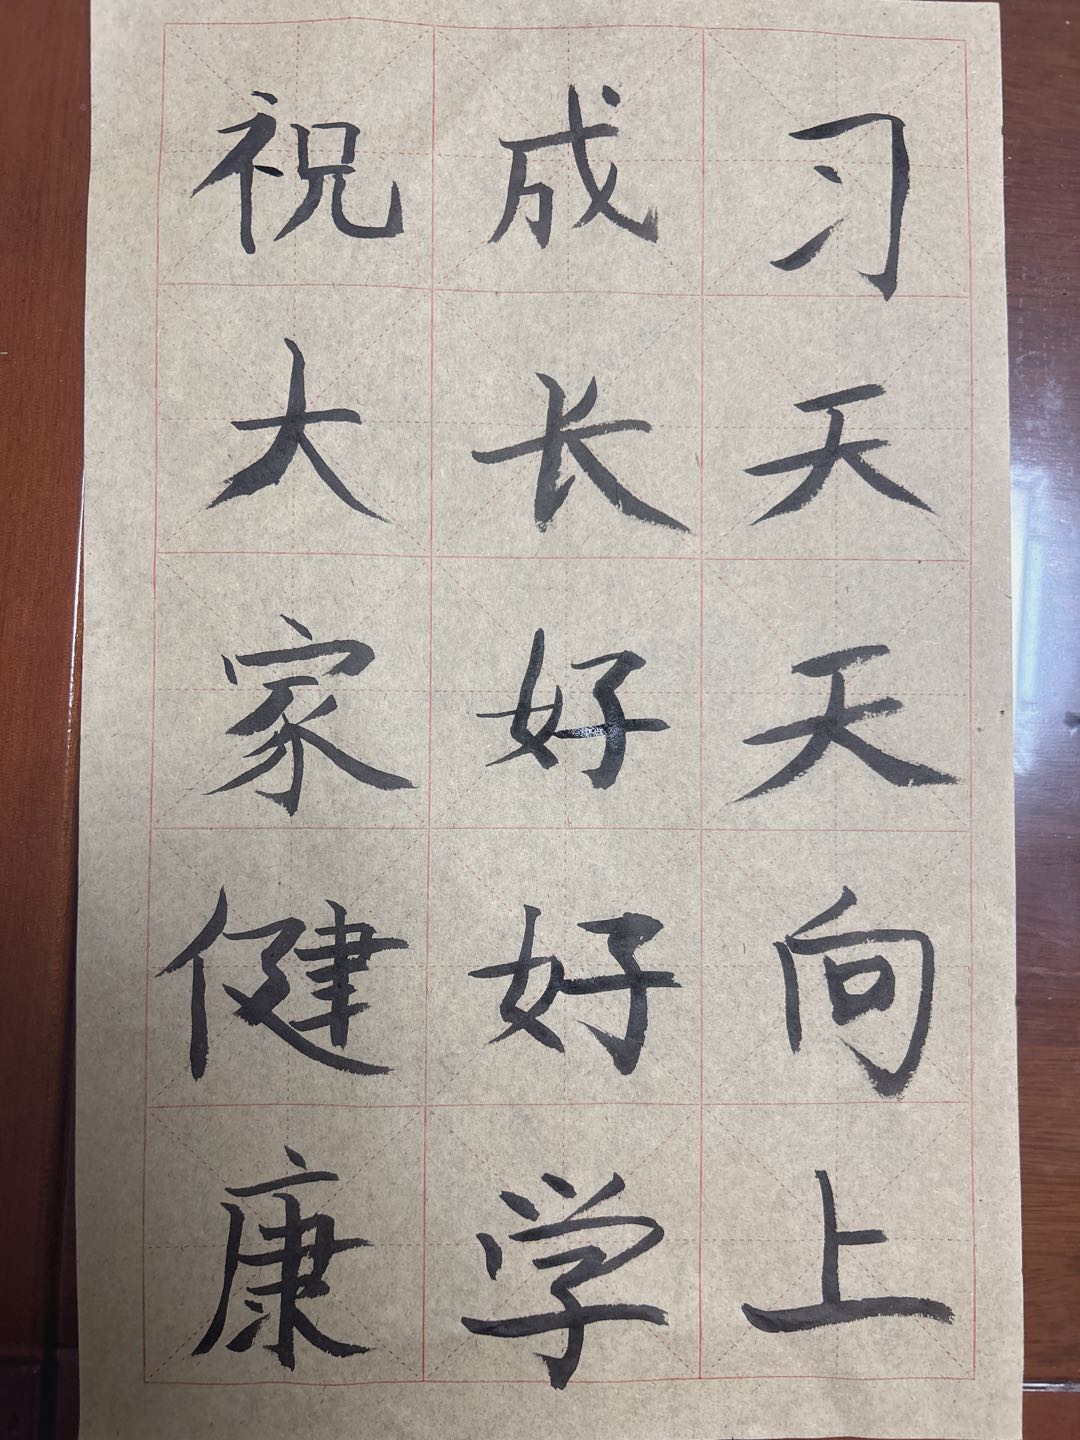 祝大家健康
成长好好学
习天天向上